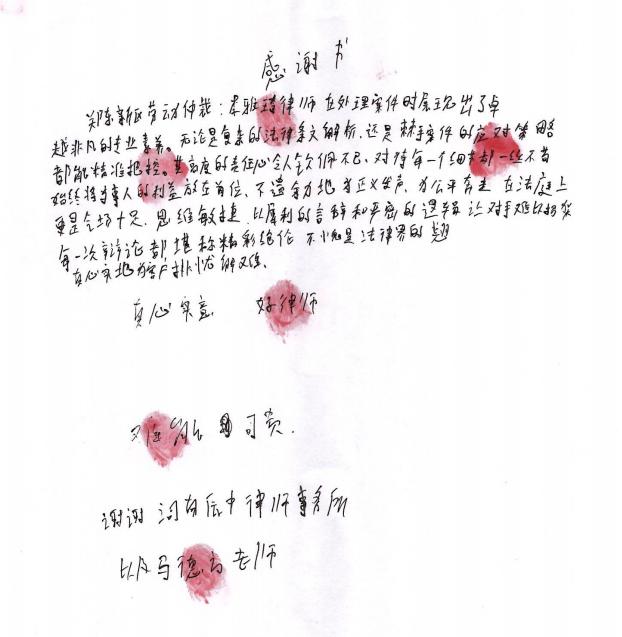 感谢书
郑东新区劳动仲裁：李雅琦律师在处理案件时展现出了卓
越非凡的专业素养。无论是复杂的法律条文解析，还是棘手案件的应对策略
都能精准把控。其高度的责任心令人钦佩不已，对待每一个细节都一丝不苟
始终将当事人的利益放在首位，不遗余力地为正义发声，为公平奔走 在法庭上
更是气场十足，思维敏捷，以犀利的言辞和严密的逻辑让对手难以招架
每一次辩论都堪称精彩绝伦 不愧是法律界的翘
真心实地为客户排忧解难。
真心实意 好律师
难能可贵.
谢谢 河南辰中律师事务所
以及马德 老师